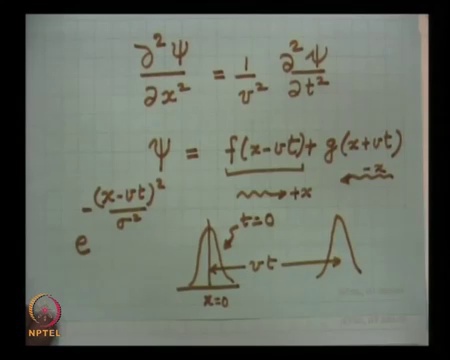 ∂²Ψ/∂x² = 1/v² ∂²Ψ/∂t²
Ψ = f(x-vt) + g(x+vt)
→ +x
← -x
e^(-(x-vt)²/σ²)
t=0
vt
x=0
NPTEL